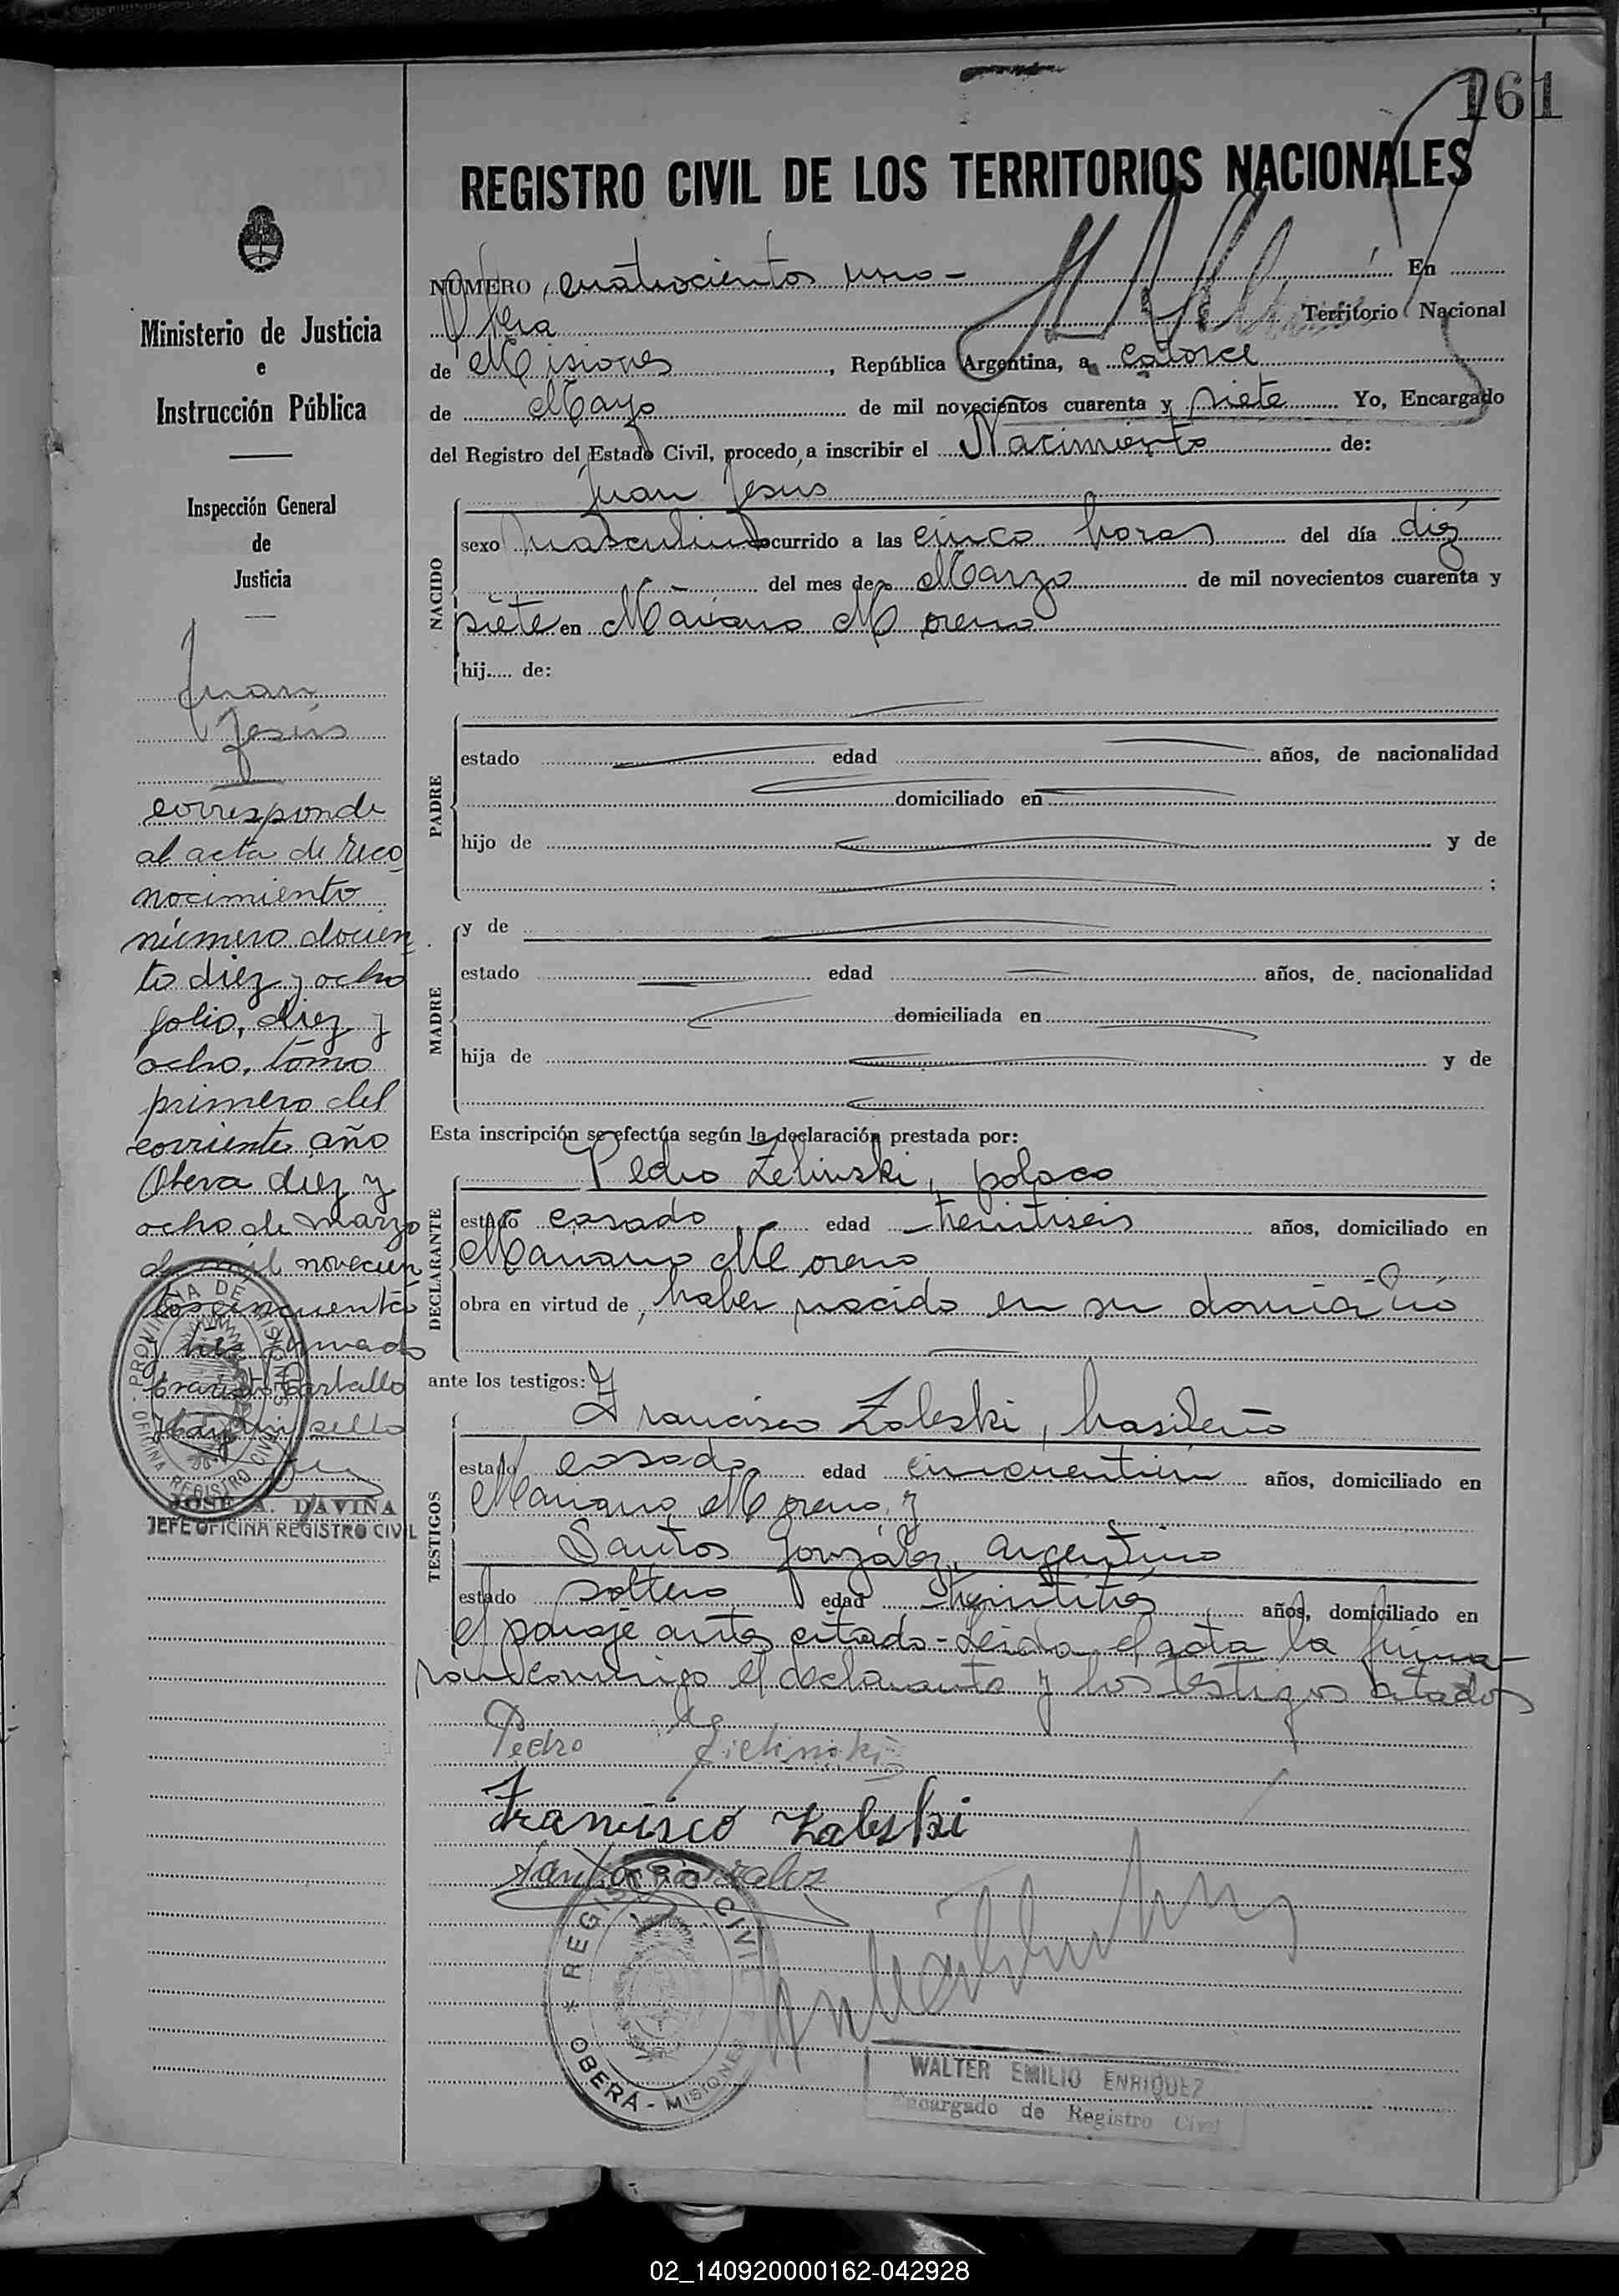 161
REGISTRO CIVIL DE LOS TERRITORIOS NACIONALES
NÚMERO cuatrocientos uno - En
Obera Territorio Nacional
de Misiones, República Argentina, a catorce
de Mayo de mil novecientos cuarenta y siete Yo, Encargado
del Registro del Estado Civil, procedo a inscribir el Nacimiento de:
Juan Jesus
NACIDO
sexo masculino ocurrido a las cinco horas del día diez
del mes de Marzo de mil novecientos cuarenta y
siete en Mariano Moreno
hij..... de:
PADRE
estado edad años, de nacionalidad
domiciliado en
hijo de y de
;
MADRE
y de
estado edad años, de nacionalidad
domiciliada en
hija de y de
Esta inscripción se efectúa según la declaración prestada por:
DECLARANTE
Pedro Zelinski, polaco
estado casado edad treintiseis años, domiciliado en
Mariano Moreno
obra en virtud de haber nacido en su domicilio
ante los testigos:
TESTIGOS
Francisco Zaleski, brasileño
estado casado edad cincuentiun años, domiciliado en
Mariano Moreno y
Santos González, argentino
estado soltero edad treintitrés años, domiciliado en
el paraje antes citado - Leida el acta la firma-
ron conmigo el declarante y los testigos citados
Pedro Zielinski
Francisco Zaleski
Santos Gonzalez
REGISTRO CIVIL
* OBERÁ - MISIONES
WALTER EMILIO ENRIQUEZ
Encargado de Registro Civil
Ministerio de Justicia
e
Instrucción Pública
Inspección General
de
Justicia
Juan
Jesús
corresponde
al acta de reco
nocimiento
número docien
to diez y ocho
folio, diez y
ocho, tomo
primero del
corriente año
Obera diez y
ocho de marzo
de mil novecien
tos cincuenta
y tres firmado
Carballo
sello
PROVINCIA DE MISIONES
OFICINA REGISTRO CIVIL
JOSE A. DAVIÑA
JEFE OFICINA REGISTRO CIVIL
02_140920000162-042928